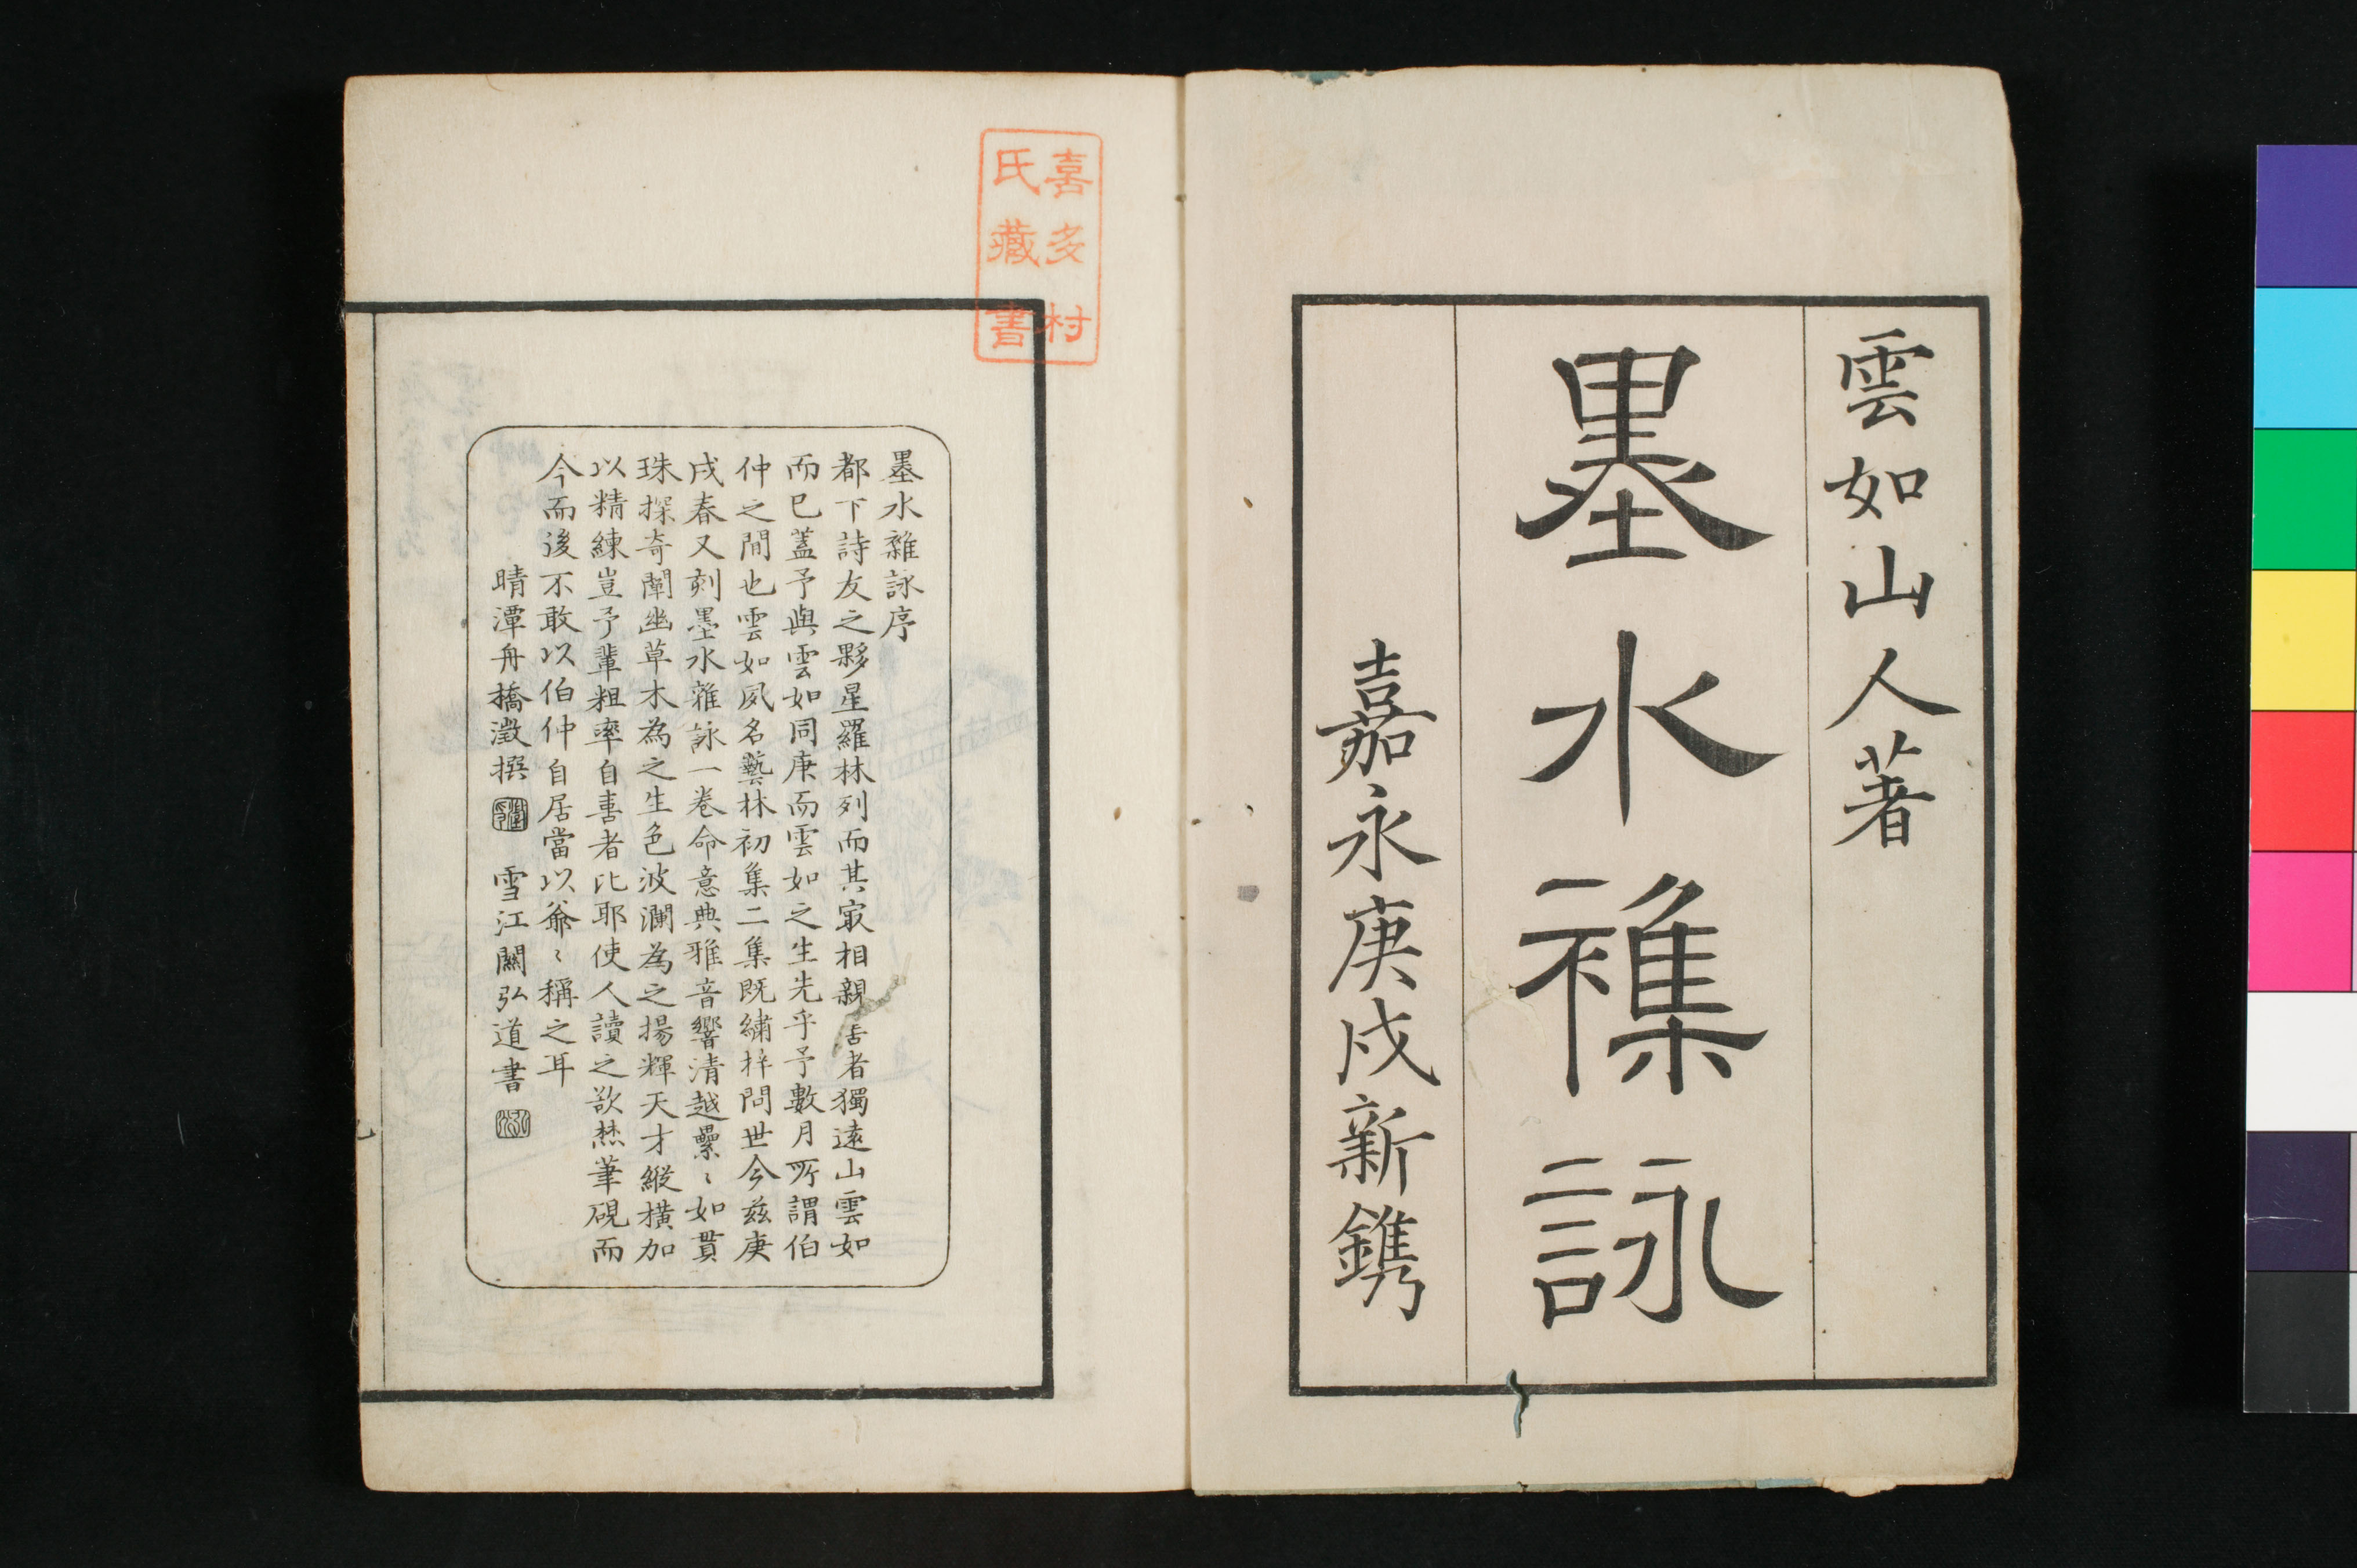 雲如山人著
墨水襍詠
嘉永庚戌新鐫
喜多村
氏藏書
墨水雜詠序
都下詩友之夥星羅林列而其㝡相親者獨遠山雲如
而已蓋予與雲如同庚而雲如之生先乎予數月所謂伯
仲之間也雲如夙名藝林初集二集既繡梓問世今茲庚
戌春又刻墨水雜詠一卷命意典雅音響清越纍〻如貫
珠探奇闡幽草木為之生色波瀾為之揚輝天才縱橫加
以精練豈予輩粗率自喜者比耶使人讀之欲焚筆硯而
今而後不敢以伯仲自居當以爺〻稱之耳
晴潭舟橋澂撰 雪江關弘道書